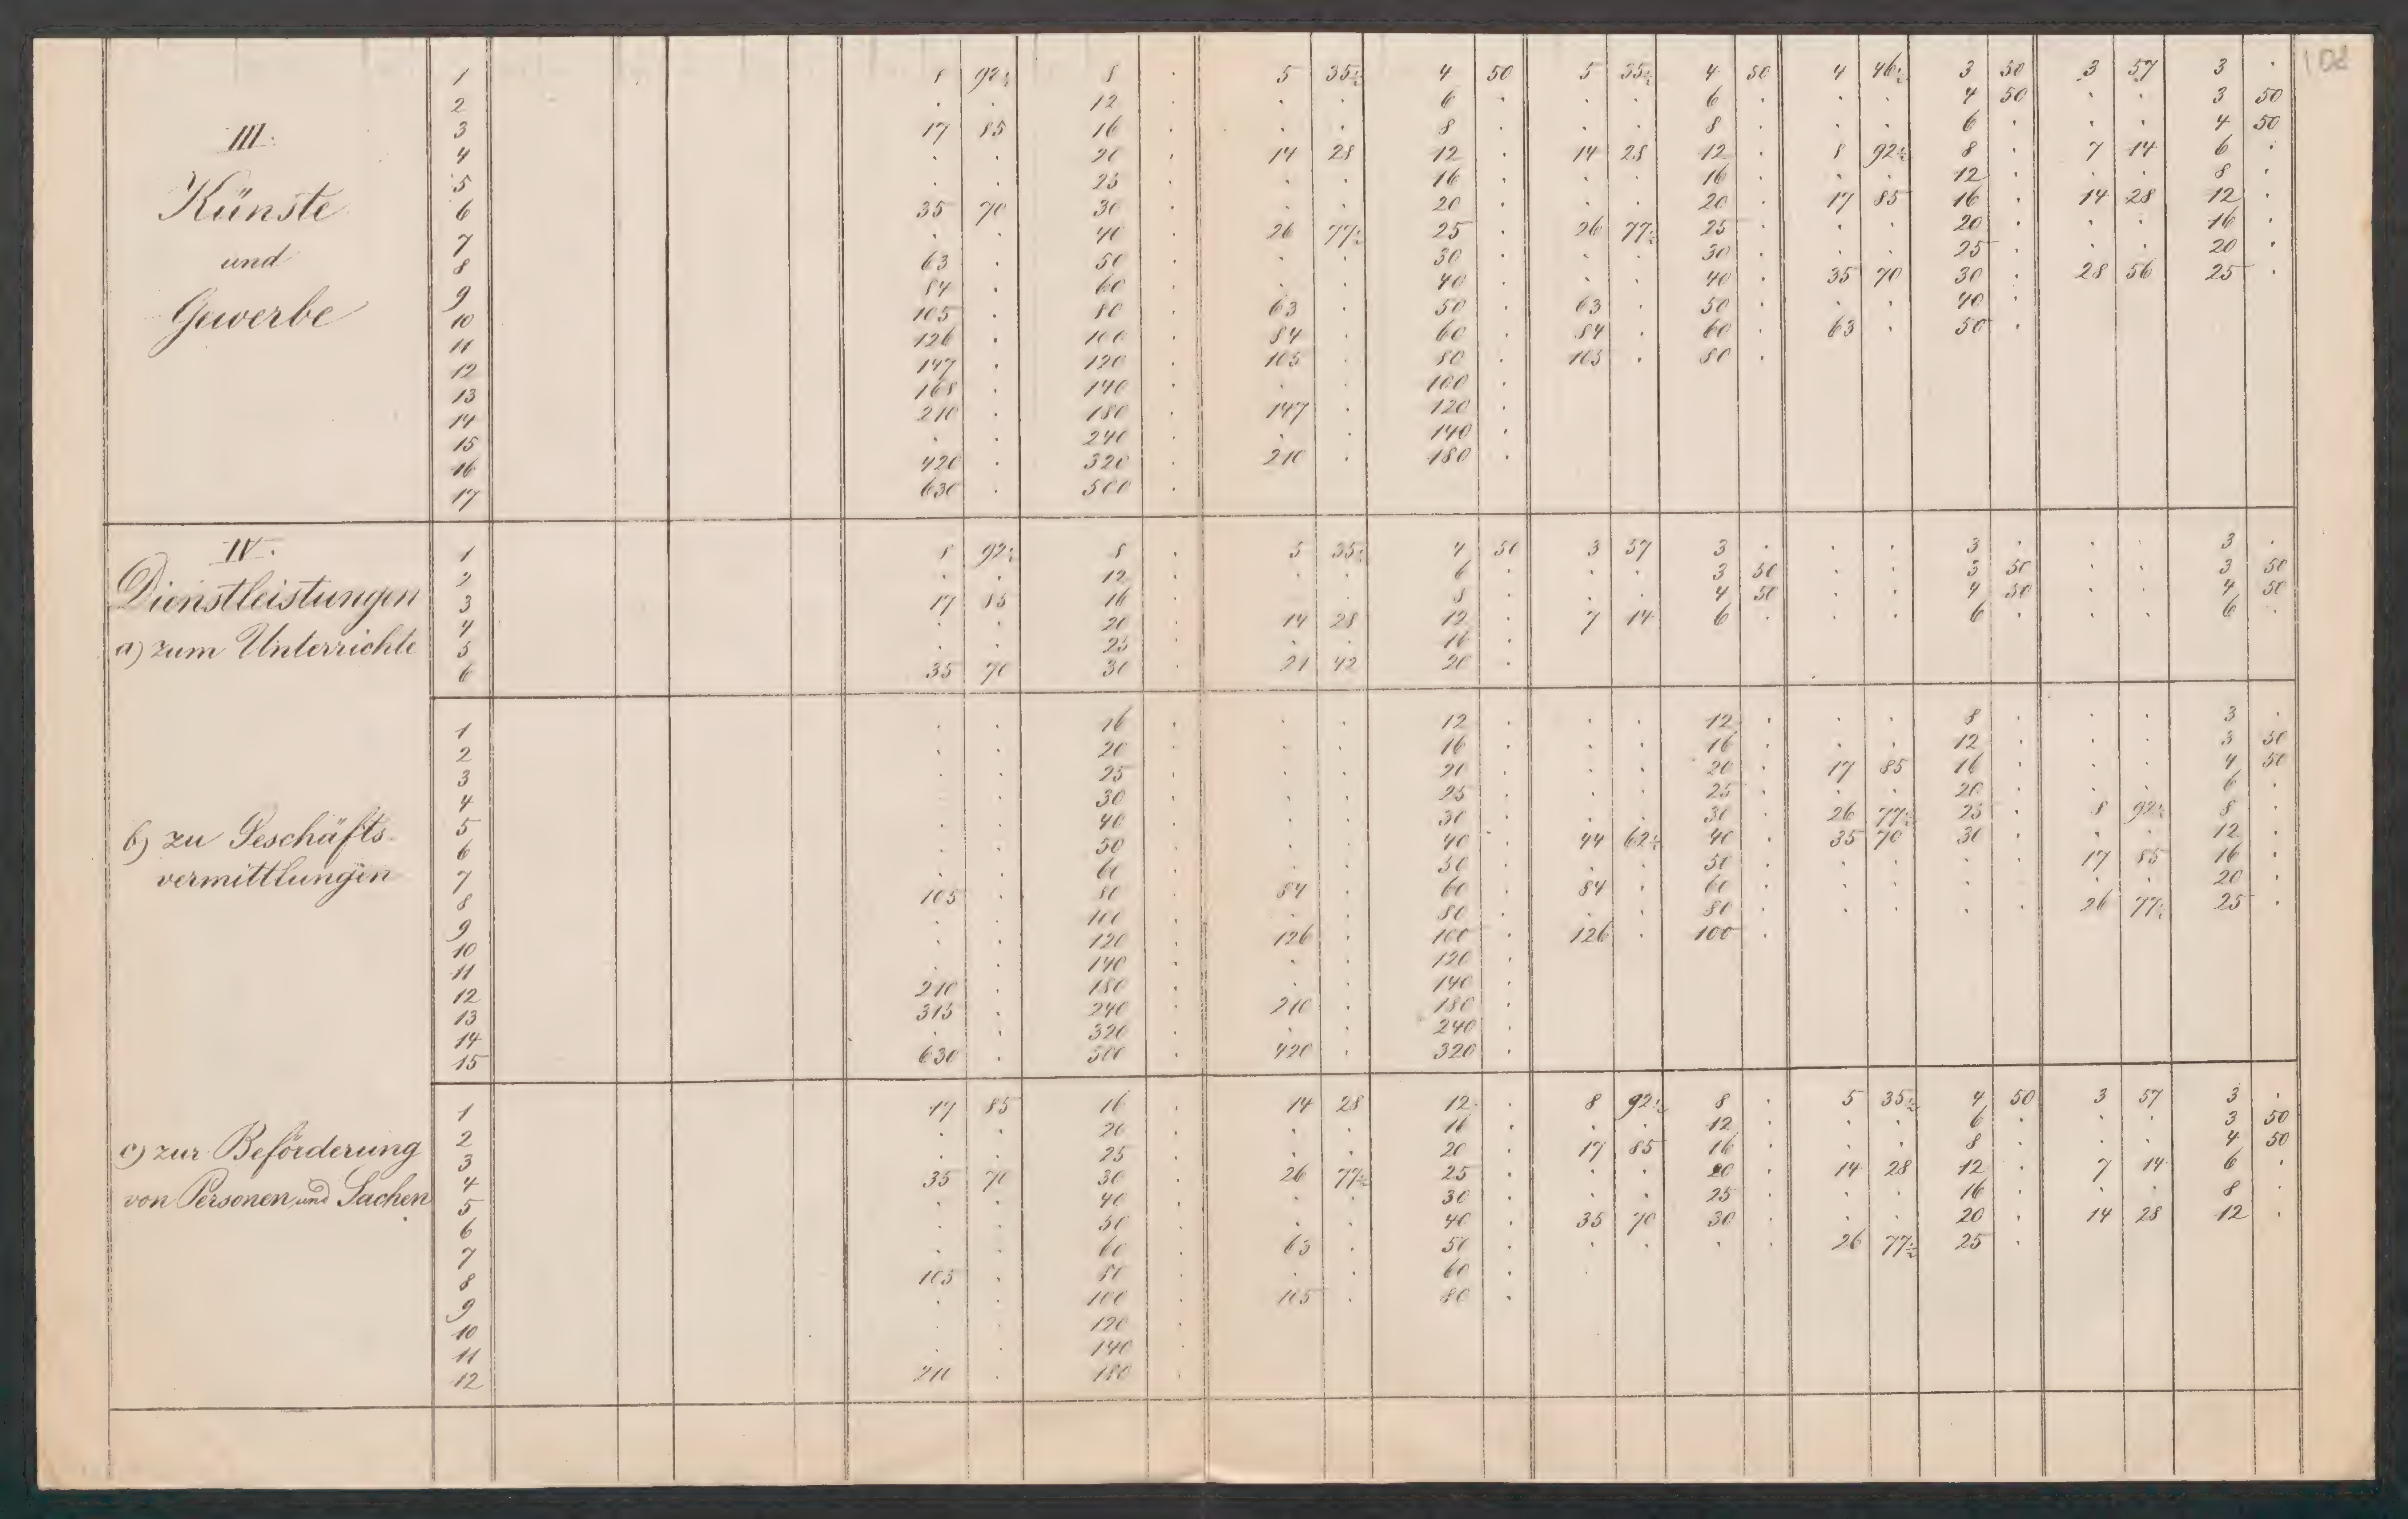 108
III.
Künste
und
Gewerbe
1 8 92½ 8 . 5 35½ 4 50 5 35½ 4 50 4 46½ 3 50 3 57 3 .
2 . . 12 . . . 6 . . . 6 . . . 4 50 . . 3 50
3 17 85 16 . . . 8 . . . 8 . . . 6 . . . 4 50
4 . . 20 . 14 28 12 . 14 28 12 . 8 92½ 8 . 7 14 6 .
5 . . 25 . . . 16 . . . 16 . . . 12 . . . 8 .
6 35 70 30 . . . 20 . . . 20 . 17 85 16 . 14 28 12 .
7 . . 40 . 26 77½ 25 . 26 77½ 25 . . . 20 . . . 16 .
8 63 . 50 . . . 30 . . . 30 . . . 25 . . . 20 .
9 84 . 60 . . . 40 . . . 40 . 35 70 30 . 28 56 25 .
10 105 . 80 . 63 . 50 . 63 . 50 . . . 40 .
11 126 . 100 . 84 . 60 . 84 . 60 . 63 . 50 .
12 147 . 120 . 105 . 80 . 105 . 80 .
13 168 . 140 . . . 100 .
14 210 . 180 . 147 . 120 .
15 . . 240 . . . 140 .
16 420 . 320 . 210 . 180 .
17 630 . 500 .
IV.
Dienstleistungen
a) zum Unterrichte
1 8 92½ 8 . 5 35½ 4 50 3 57 3 . . . 3 . . . 3 .
2 . . 12 . . . 6 . . . 3 50 . . 3 50 . . 3 50
3 17 85 16 . . . 8 . . . 4 50 . . 4 50 . . 4 50
4 . . 20 . 14 28 12 . 7 14 6 . . . 6 . . . 6 .
5 . . 25 . . . 16 .
6 35 70 30 . 21 42 20 .
b) zu Geschäfts-
vermittlungen
1 . . 16 . . . 12 . . . 12 . . . 8 . . . 3 .
2 . . 20 . . . 16 . . . 16 . . . 12 . . . 3 50
3 . . 25 . . . 20 . . . 20 . 17 85 16 . . . 4 50
4 . . 30 . . . 25 . . . 25 . . . 20 . . . 6 .
5 . . 40 . . . 30 . . . 30 . 26 77½ 25 . 8 92½ 8 .
6 . . 50 . . . 40 . 44 62½ 40 . 35 70 30 . . . 12 .
7 . . 60 . . . 50 . . . 50 . . . . . 17 85 16 .
8 105 . 80 . 84 . 60 . 84 . 60 . . . . . . . 20 .
9 . . 100 . . . 80 . . . 80 . . . . . 26 77½ 25 .
10 . . 120 . 126 . 100 . 126 . 100 .
11 . . 140 . . . 120 .
12 210 . 180 . . . 140 .
13 315 . 240 . 210 . 180 .
14 . . 320 . . . 240 .
15 630 . 500 . 420 . 320 .
c) zur Beförderung
von Personen und Sachen
1 17 85 16 . 14 28 12 . 8 92½ 8 . 5 35½ 4 50 3 57 3 .
2 . . 20 . . . 16 . . . 12 . . . 6 . . . 3 50
3 . . 25 . . . 20 . 17 85 16 . . . 8 . . . 4 50
4 35 70 30 . 26 77½ 25 . . . 20 . 14 28 12 . 7 14 6 .
5 . . 40 . . . 30 . . . 25 . . . 16 . . . 8 .
6 . . 50 . . . 40 . 35 70 30 . . . 20 . 14 28 12 .
7 . . 60 . 63 . 50 . . . . . 26 77½ 25 .
8 105 . 80 . . . 60 .
9 . . 100 . 105 . 80 .
10 . . 120 .
11 . . 140 .
12 210 . 180 .